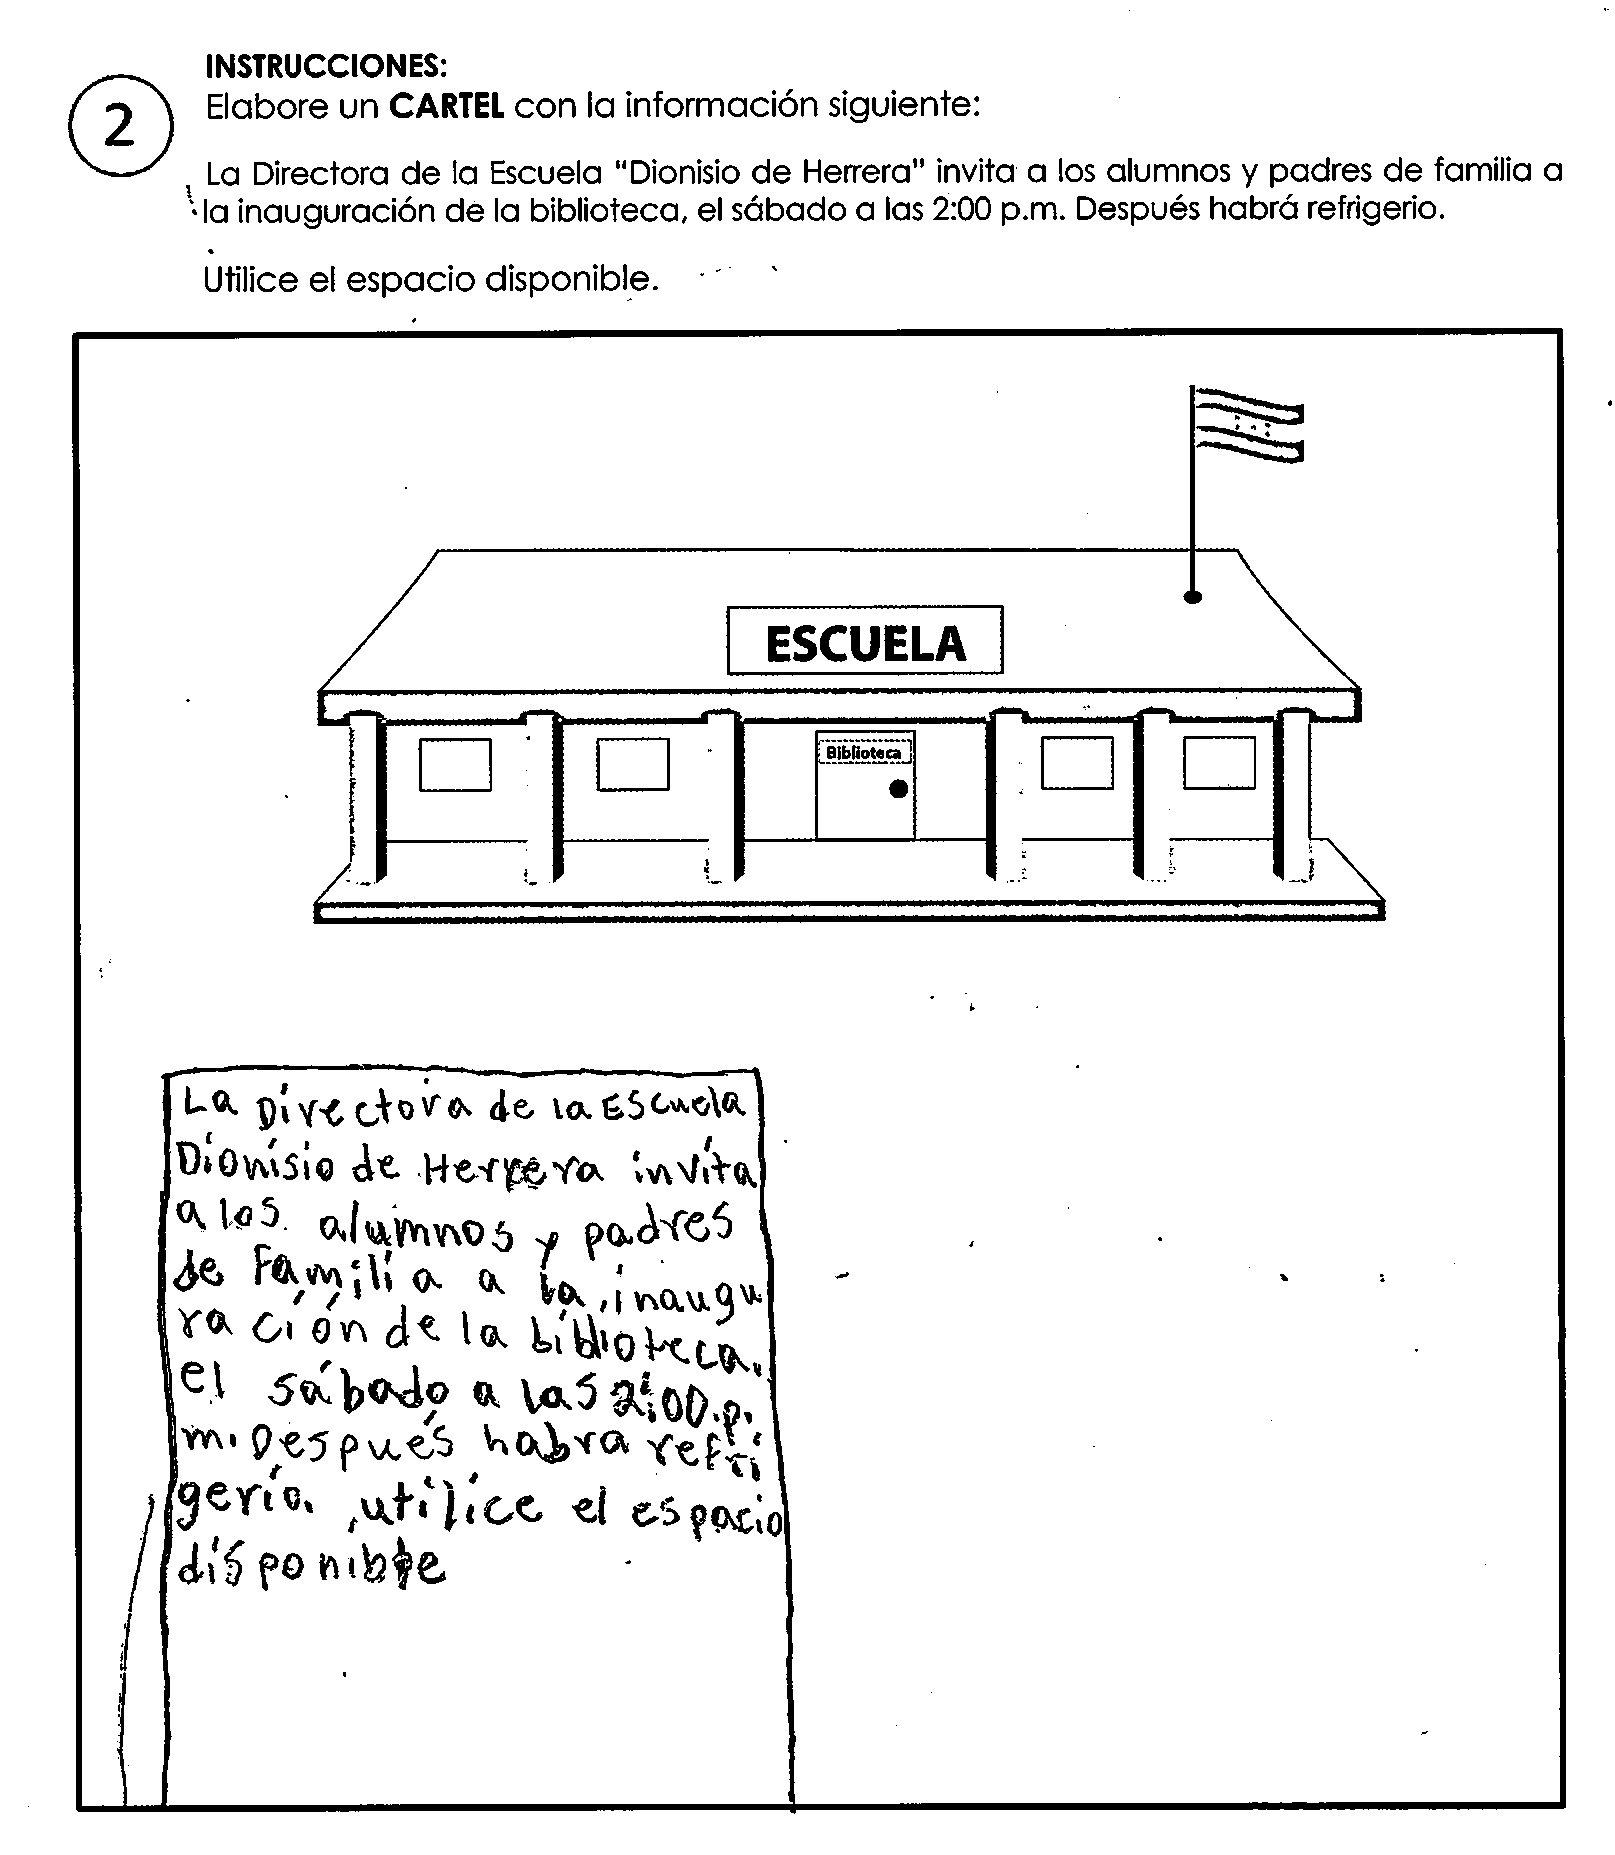 INSTRUCCIONES:
2
Elabore un CARTEL con la información siguiente:
La Directora de la Escuela "Dionisio de Herrera" invita a los alumnos y padres de familia a
la inauguración de la biblioteca, el sábado a las 2:00 p.m. Después habrá refrigerio.
Utilice el espacio disponible.
ESCUELA
Biblioteca
La Directora de la Escuela
Dionisio de Herrera invita
a los alumnos y padres
de Familia a la inaugu
ración de la biblioteca.
el sábado a las 2:00.p.
m. Después habra refri
gerio. utilice el espacio
disponible